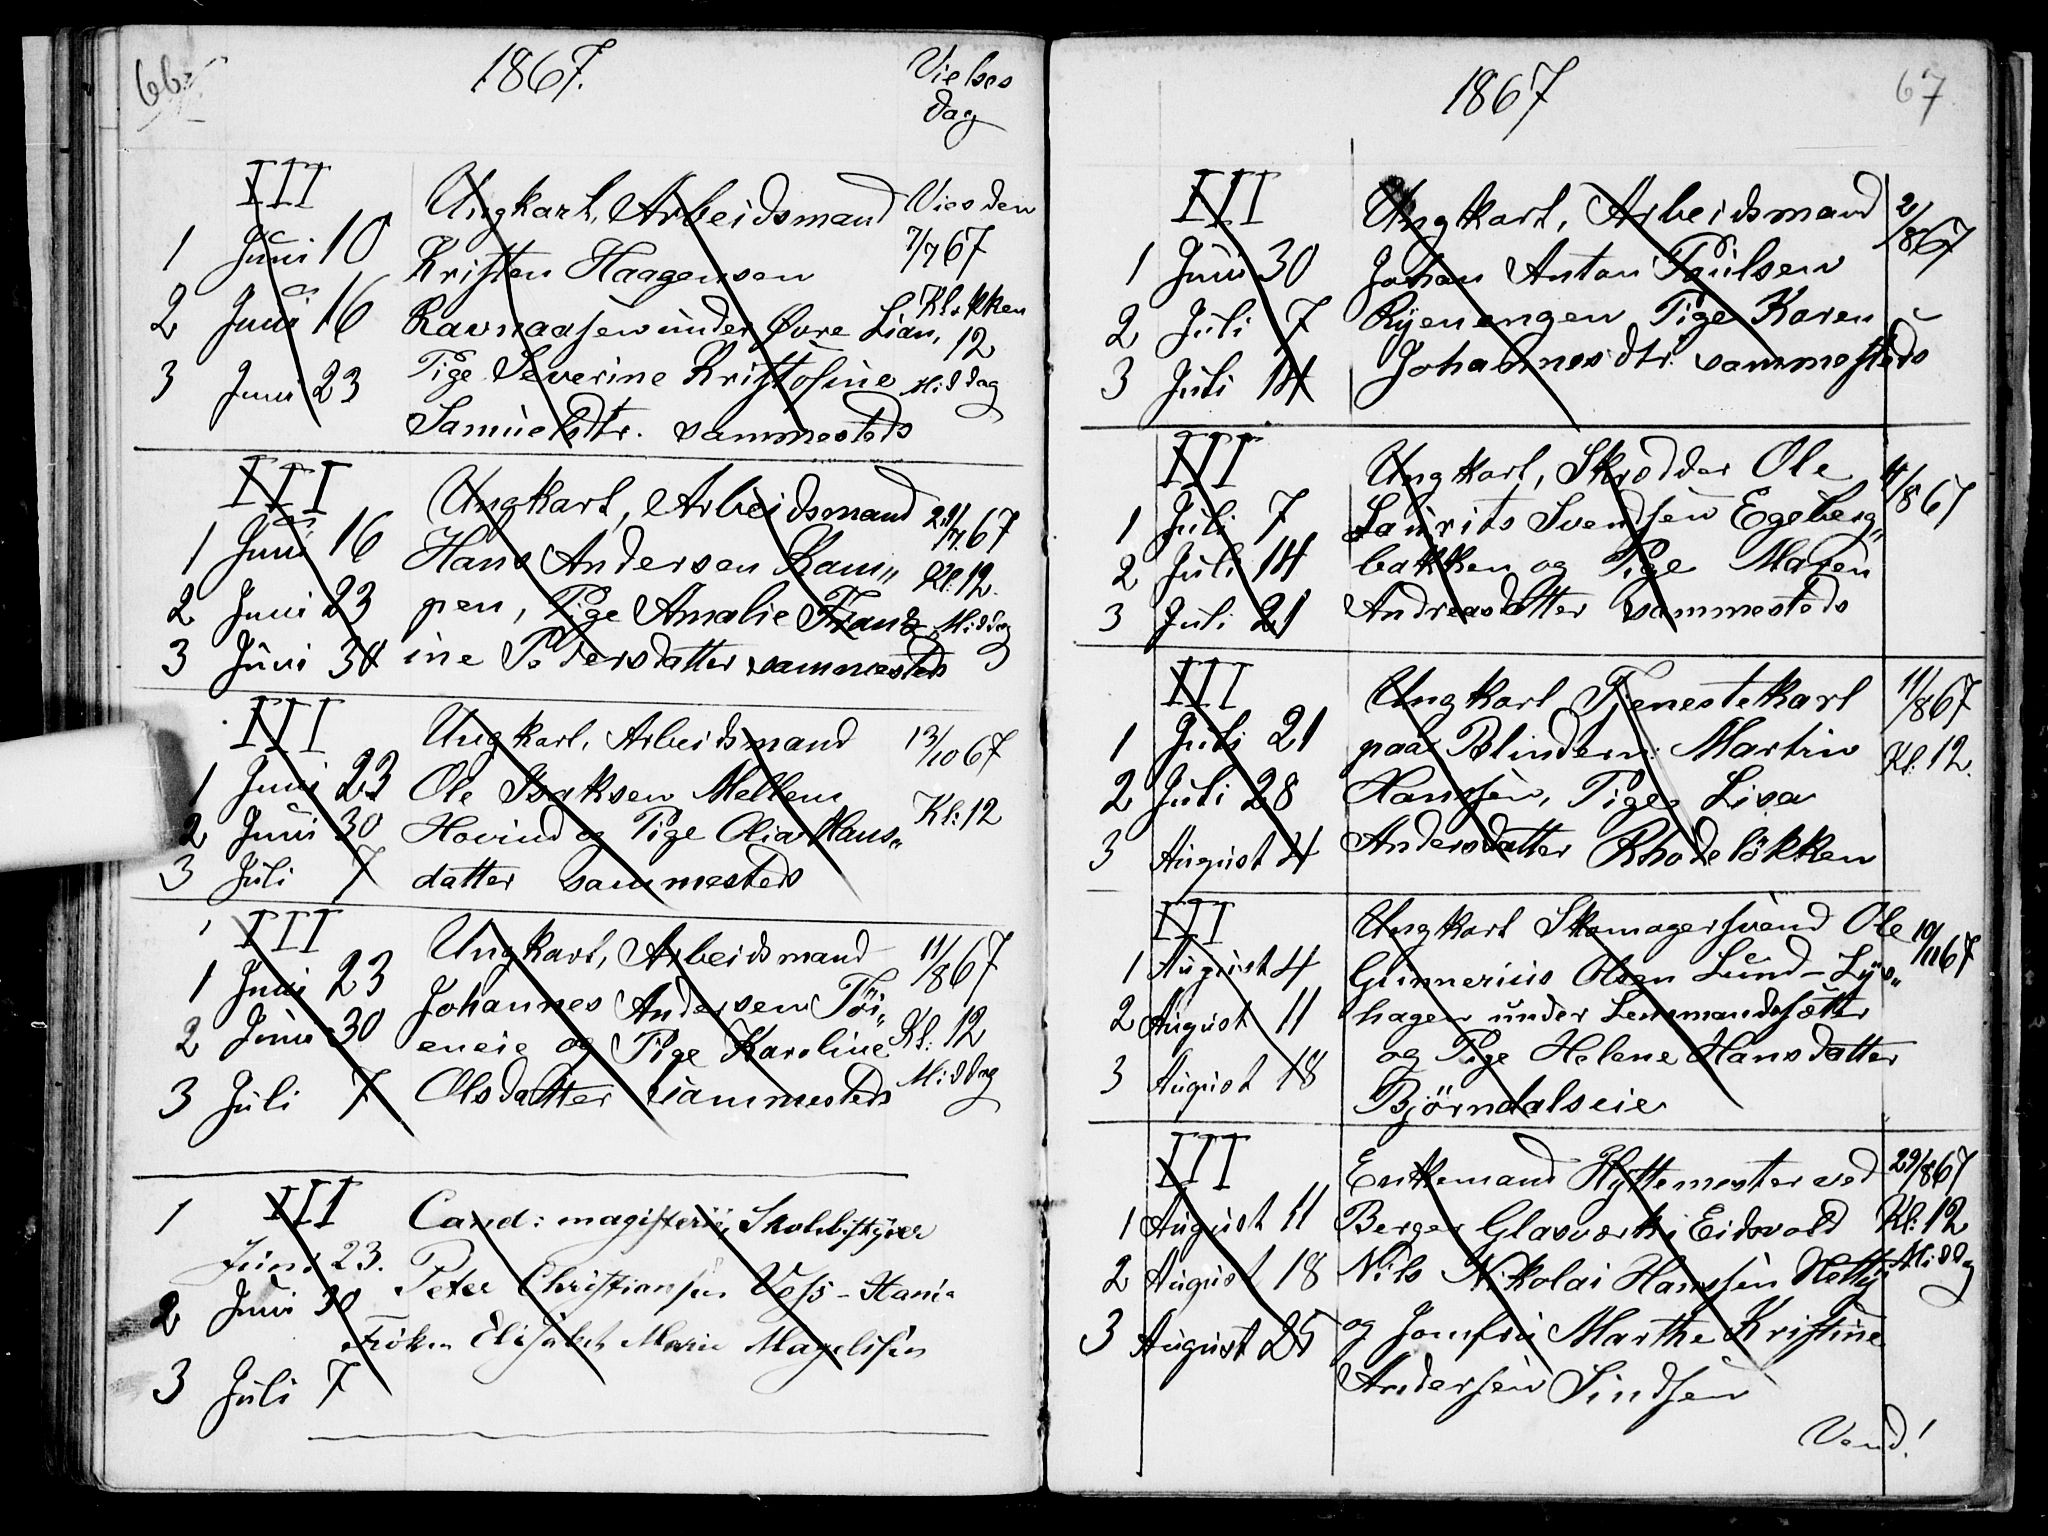 66
1867.
Vielses
dag
III
1 Juni 10
2 Juni 16
3 Juni 23
Ungkarl, Arbeidsmand
Kristen Haagensen
Ravnaasen under Øvre Lian,
Pige Severine Kristofine
Samuelsdtr. sammesteds
Vies den
7/7 67
Klokken
12
Middag
III
1 Juni 16
2 Juni 23
3 Juni 30
Ungkarl, Arbeidsmand
Hans Andersen Kam„
pen, Pige Amalie Franz
ine Pedersdatter sammesteds
21/7 67
Kl. 12.
Middag
III
1 Juni 23
2 Juni 30
3 Juli 7
Ungkarl, Arbeidsmand
Ole Isaksen Mellem
Hovind og Pige Olia Hans„
datter sammesteds
13/10 67
Kl: 12
III
1 Juni 23
2 Juni 30
3 Juli 7
Ungkarl, Arbeidsmand
Johannes Andersen Töi„
eneie og Pige Karoline
Olsdatter sammesteds
11/8 67
Kl: 12
Middag
III
1 Juni 23.
2 Juni 30
3 Juli 7
Cand: magisterii, Skolebestyrer
Peter Christiansen Voss -
Frøken Elisabeth Marie Magelssen
1867
67
III
1 Juni 30
2 Juli 7
3 Juli 14
Ungkarl, Arbeidsmand
Johan Anton Paulsen
Ryenengen Pige Karen
Johannesdtr. sammesteds
2/8 67
III
1 Juli 7
2 Juli 14
3 Juli 21
Ungkarl, Skrædder Ole
Laurits Svendsen Egeberg„
bakken og Pige Maren
Andreasdatter sammesteds
4/8 67
III
1 Juli 21
2 Juli 28
3 August 4
Ungkarl Tjenestekarl
paa Blindern: Martin
Hanssen, Pige Lisa
Andersdatter Rhodeløkken
11/8 67
Kl: 12.
III
1 August 4
2 August 11
3 August 18
Ungkarl Skomagersvend Ole
Gunnerius Olsen Lund - Lys„
hagen under Lensmandsætter
og Pige Helene Hansdatter
Björndalseie
10/11 67
III
1 August 11
2 August 18
3 August 25
Enkemand Hyttemester ved
Berger Glasværk i Eidsvold
Nils Nikolai Hanssen
og Jomfru Marthe Kristine
Andersen Sindsen
29/8 67
Kl: 12
Middag
Vend!